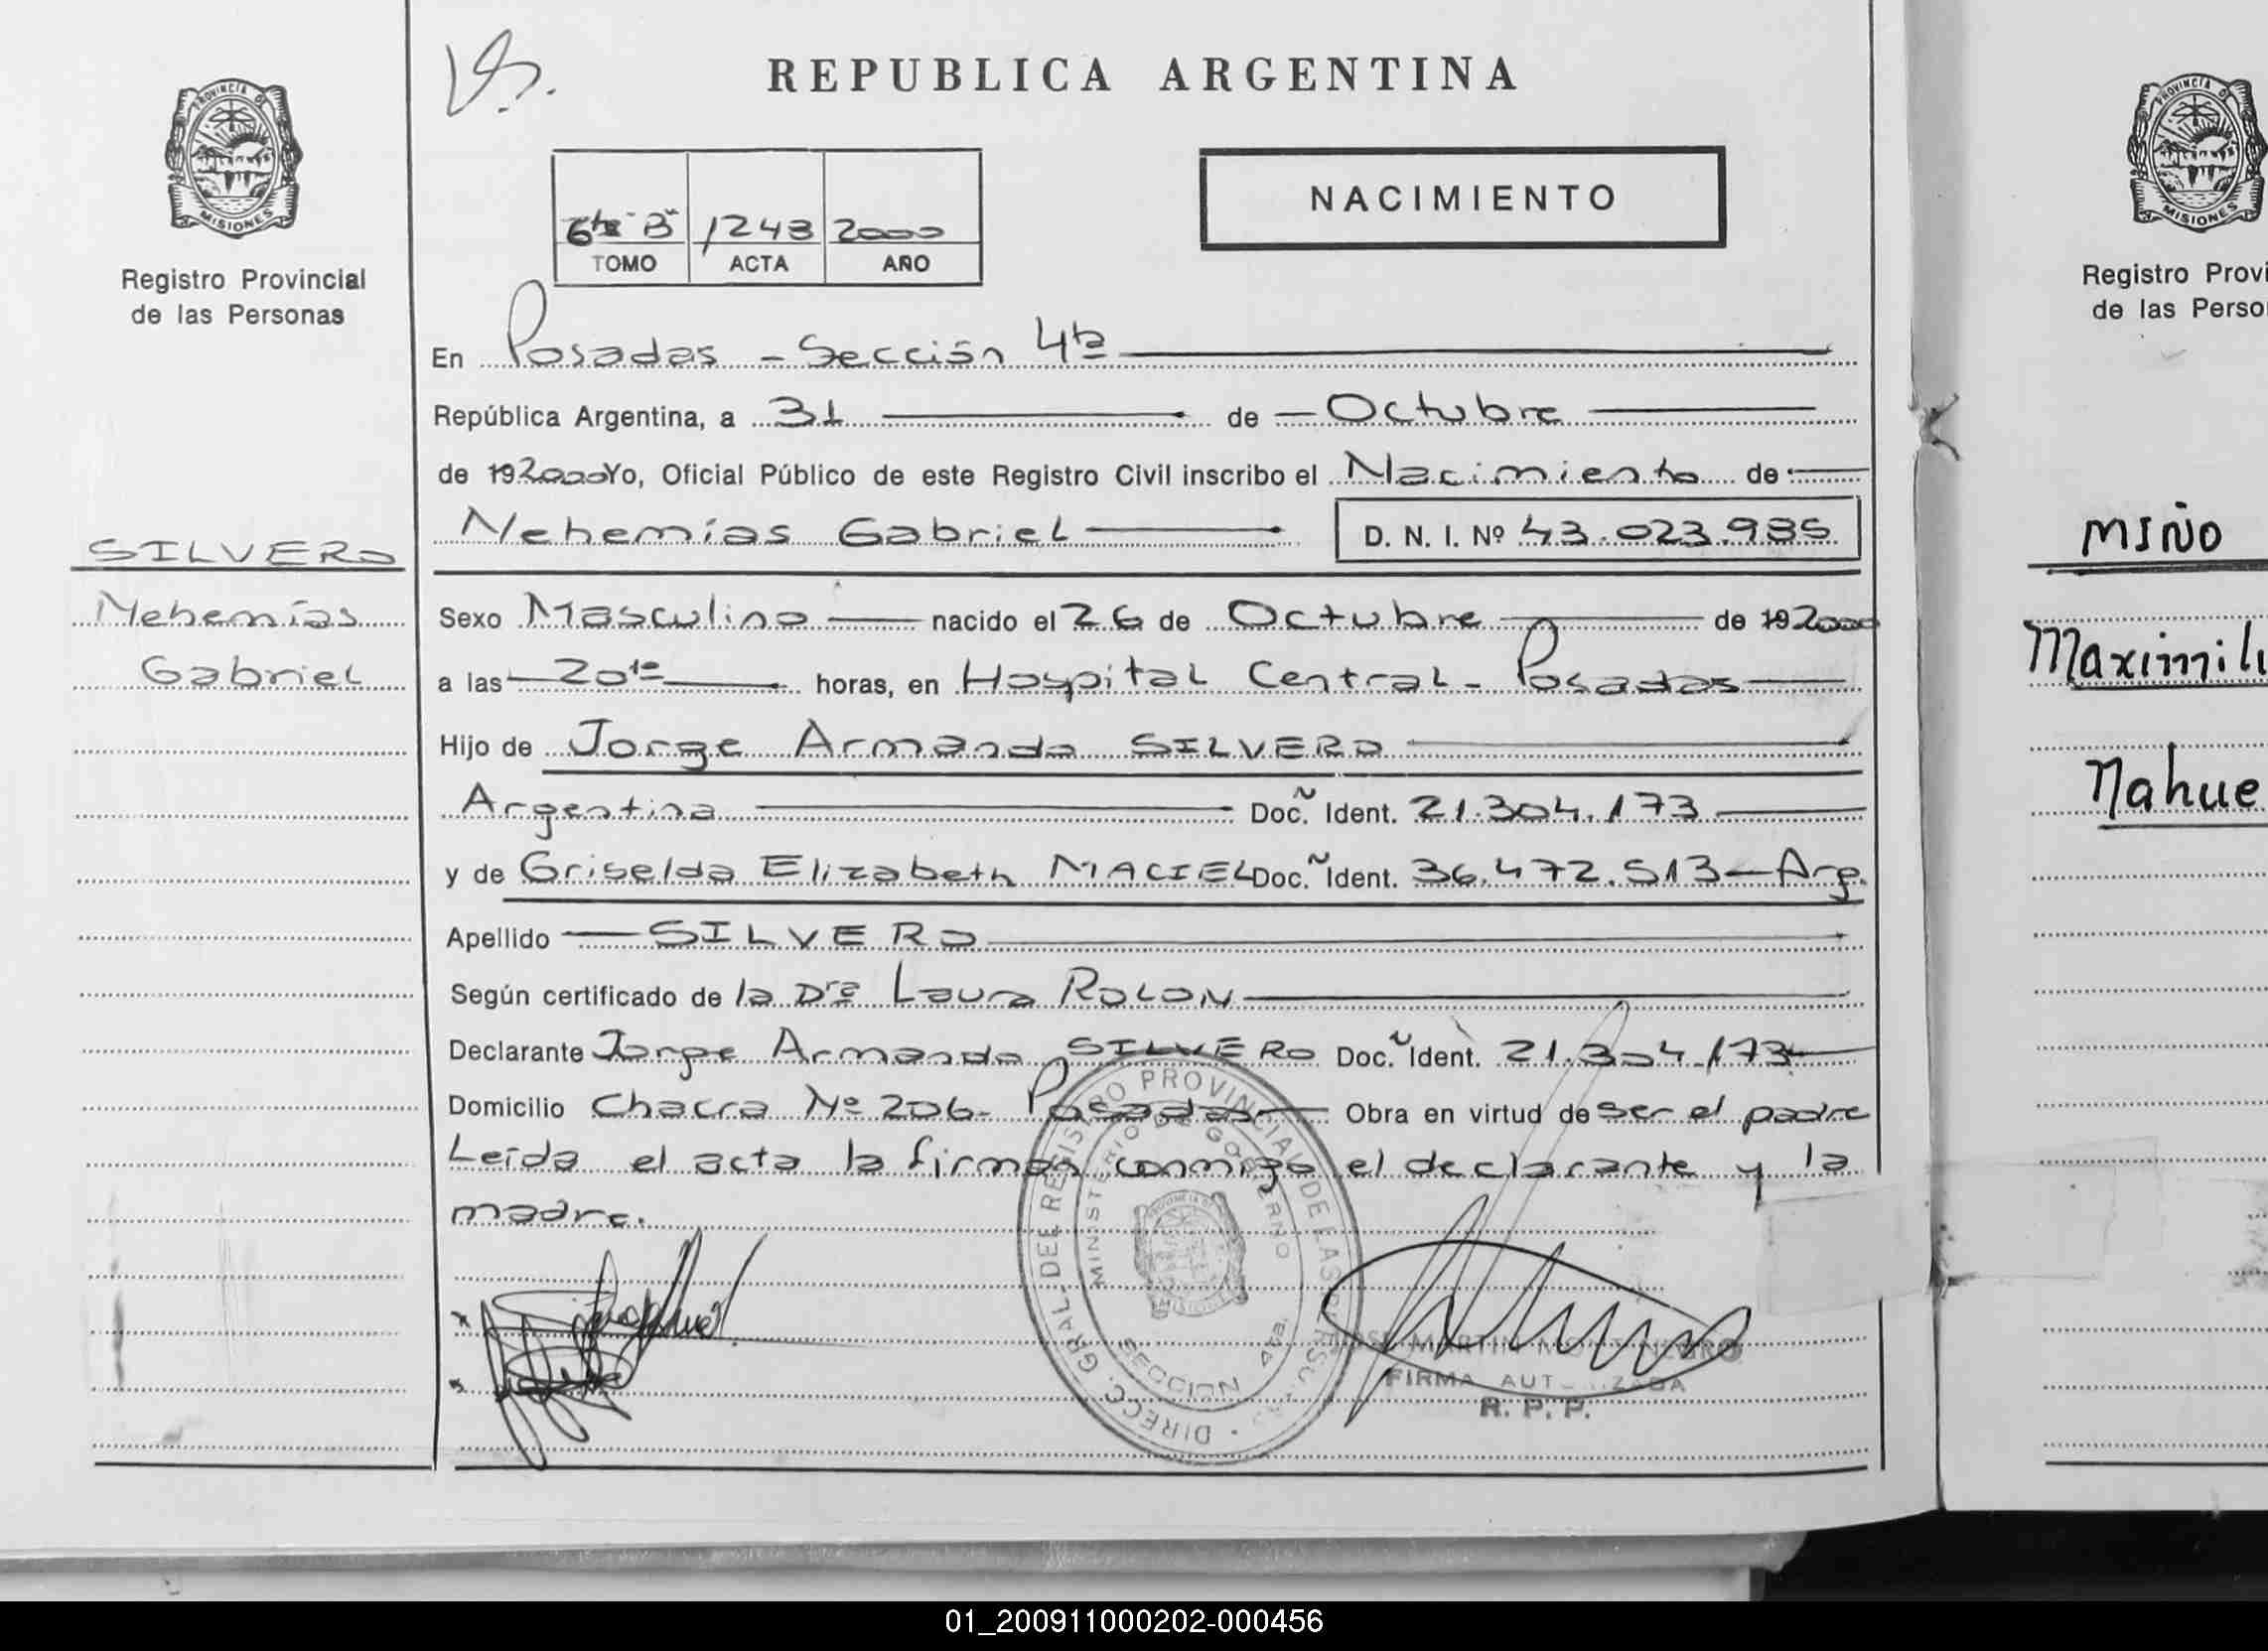 REPUBLICA ARGENTINA
PROVINCIA DE
MISIONES
Registro Provincial
de las Personas
6to "B" 1243 2000
TOMO ACTA AÑO
NACIMIENTO
En Posadas - Sección 4ta
República Argentina, a 31 de Octubre
de 192000 Yo, Oficial Público de este Registro Civil inscribo el Nacimiento de
Nehemías Gabriel D. N. I. Nº 43.023.985
SILVERO
Nehemías
Gabriel
Sexo Masculino nacido el 26 de Octubre de 192000
a las 20 10 horas, en Hospital Central - Posadas
Hijo de Jorge Armando SILVERO
Argentina Doc. Ident. 21.304.173
y de Griselda Elizabeth MACIEL Doc. Ident. 36.472.513 - Arg.
Apellido SILVERO
Según certificado de la Dra Laura ROLON
Declarante Jorge Armando SILVERO Doc. Ident. 21.304.173
Domicilio Chacra Nº 206 - Posadas Obra en virtud de ser el padre
Leída el acta la firman conmigo el declarante y la
madre.
DIREC. GRAL. DEL REGISTRO PROVINCIAL DE LAS PERSONAS
MINISTERIO DE GOBIERNO
SECCION 4ta.
JOSE MARTIN MONTENEGRO
FIRMA AUTORIZADA
R. P. P.
PROVINCIA D
MISIONES
Registro Provi
de las Perso
MIÑO
Maximili
Nahue
01_200911000202-000456